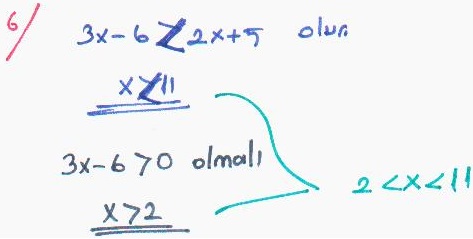 6/
3x-6 < 2x+5 olur
x < 11
3x-6 > 0 olmalı
x > 2
2 < x < 11